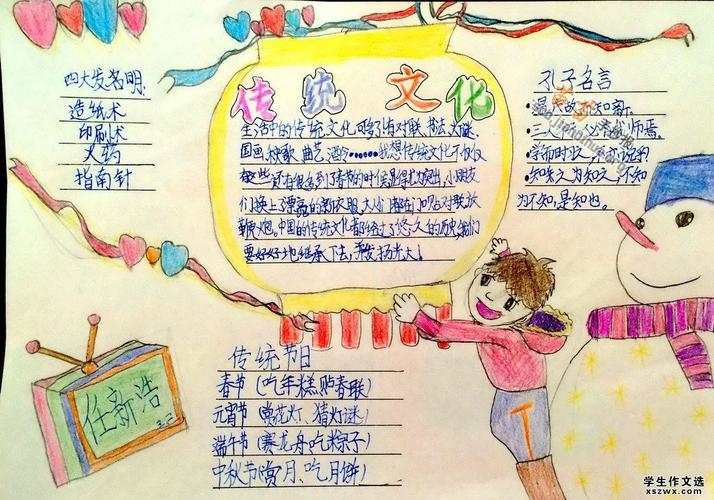 四大发名明:
造纸术
印刷术
火药
指南针
传统文化
生活中的传统文化可多了,有对联、书法、灯谜、
国画、秧歌、曲艺、酒令……我想传统文化不仅仅
有这些,还有很多。到了春节的时候显得尤为突出,小朋友
们换上了漂亮的新衣服,大人们都在门口贴对联放
鞭炮。中国的传统文化都经过了悠久的历史,我们
要好好地继承下去,并发扬光大!
孔子名言
·温故而知新。
·三人 必有我师焉。
·学而时习之,不亦说乎
·知之为知之,不知
为不知,是知也。
任新浩
三.二
传统节日
春节(吃年糕贴春联)
元宵节(赏花灯、猜灯谜)
端午节(赛龙舟、吃粽子)
中秋节(赏月、吃月饼)
T
学生作文选
xszwx.com